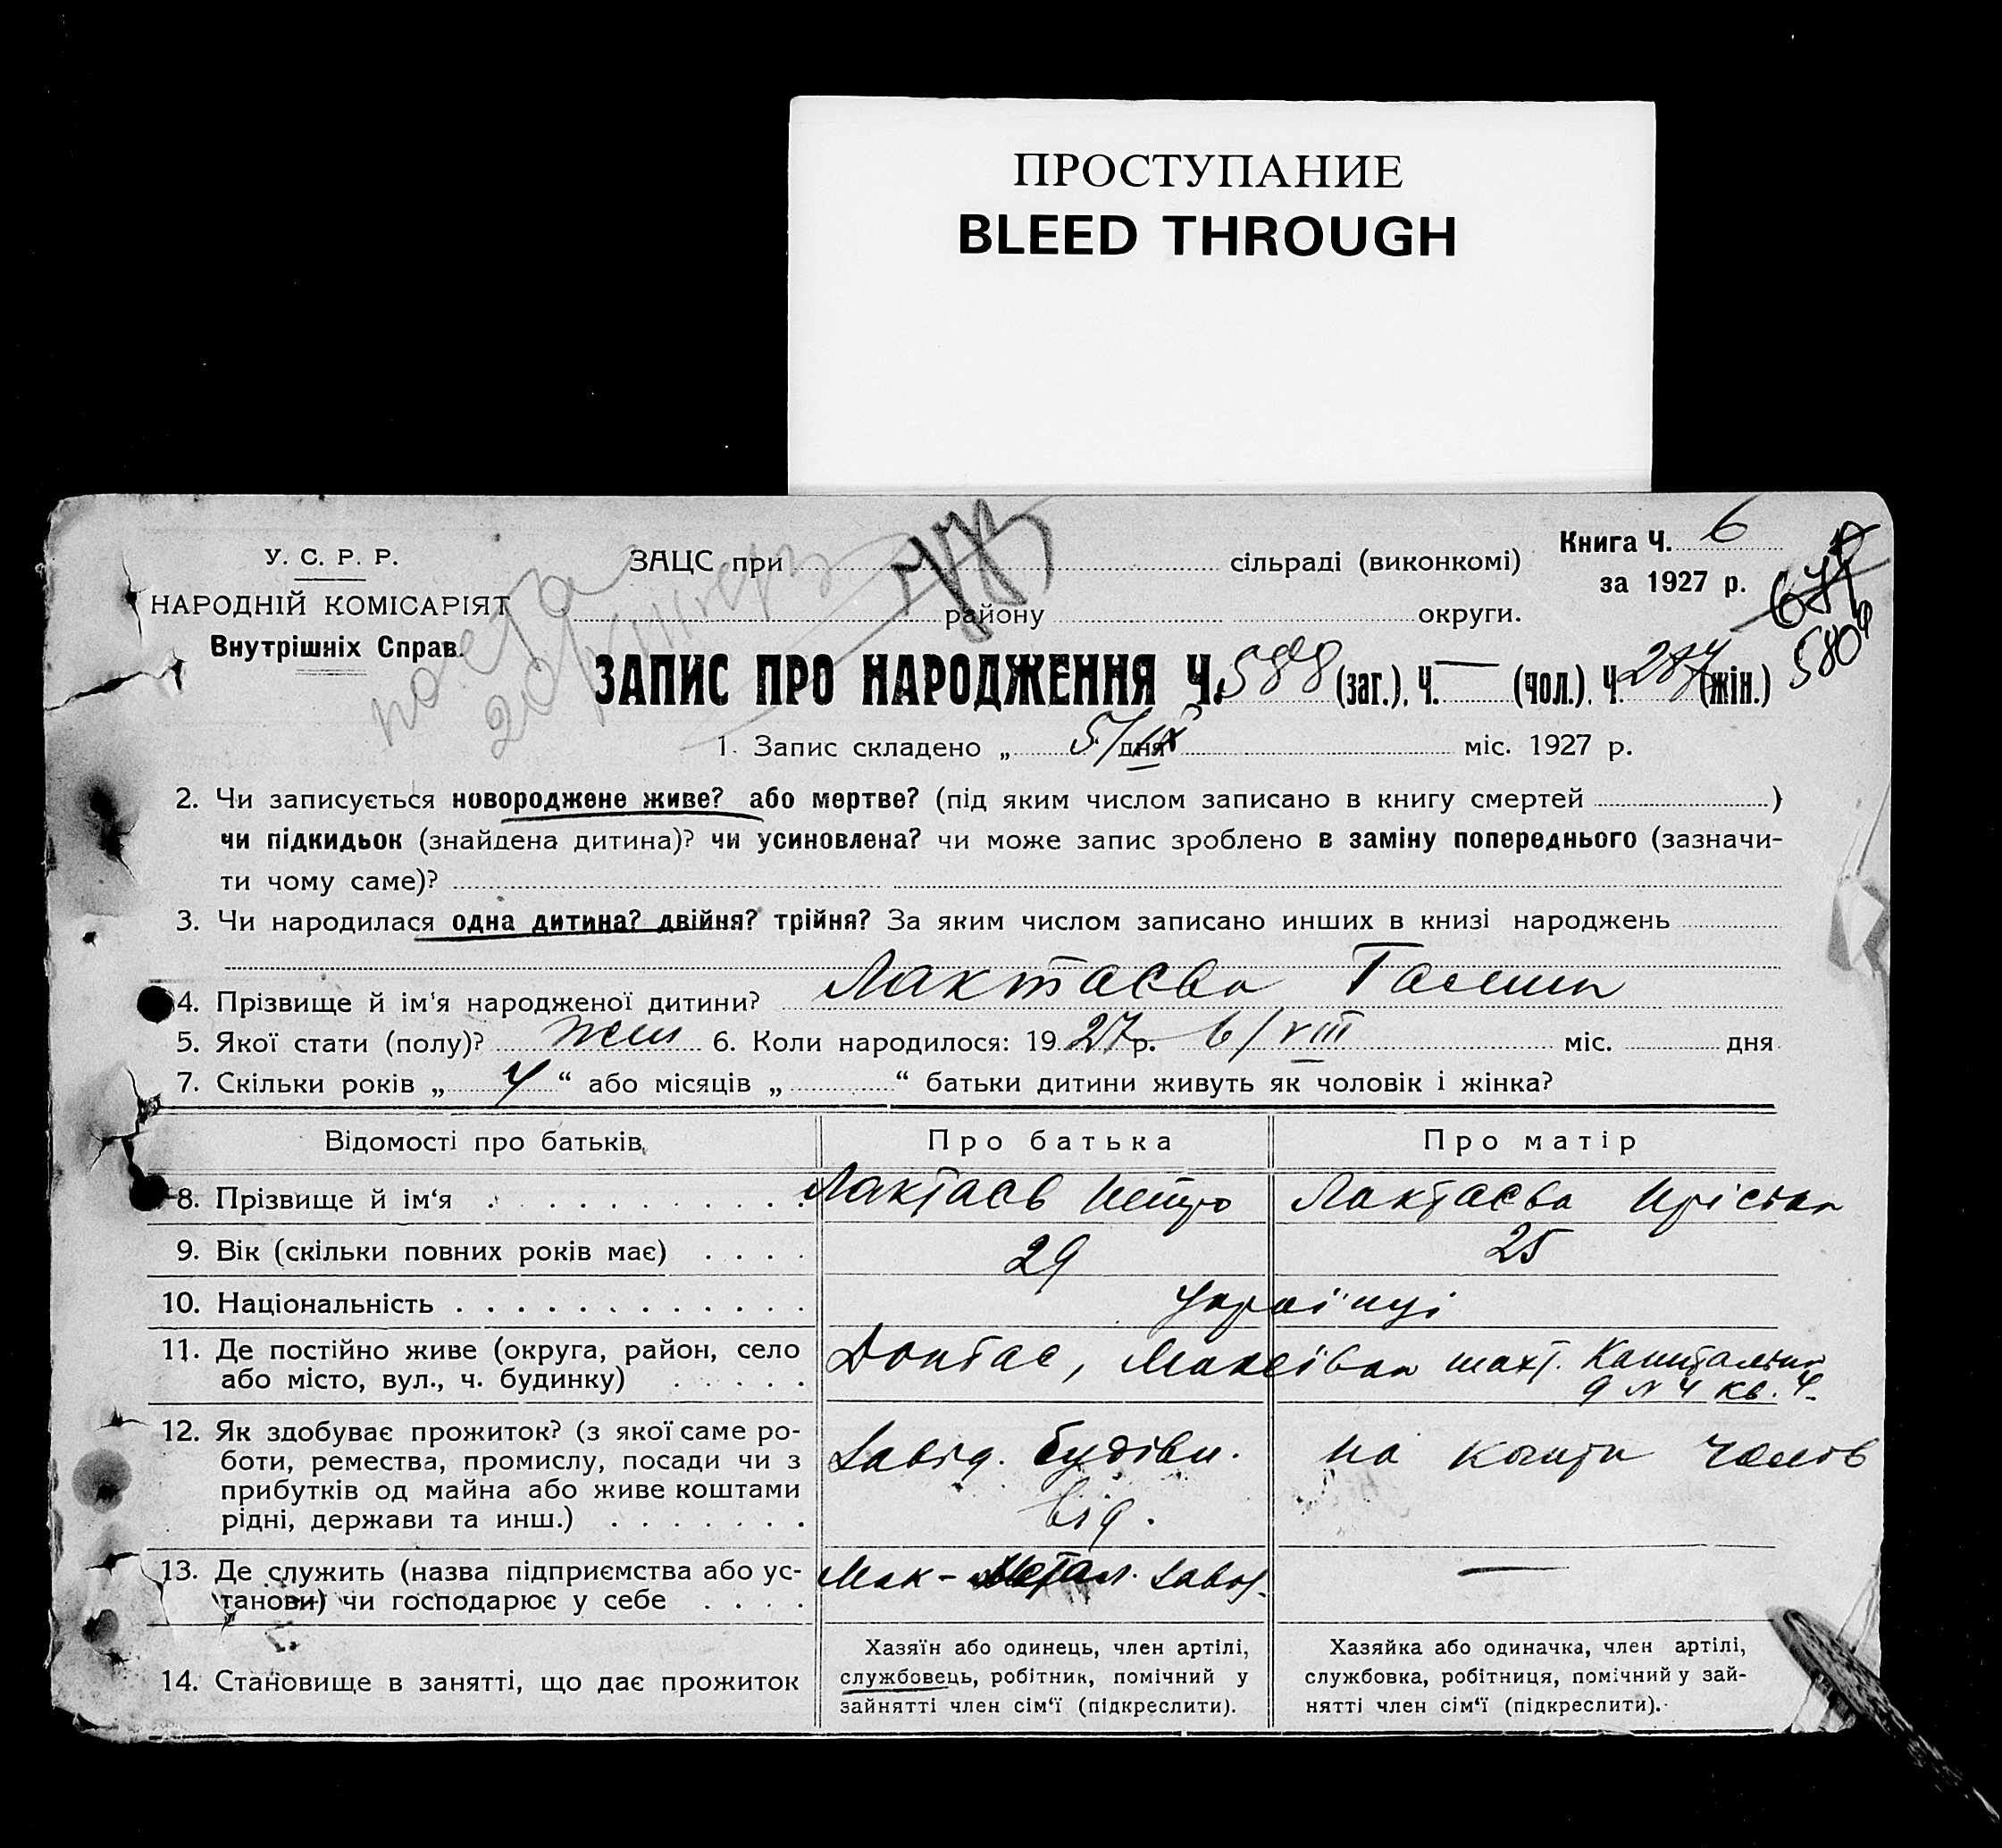 ПРОСТУПАНИЕ
BLEED THROUGH
У. С. Р. Р.
НАРОДНІЙ КОМІСАРІЯТ
Внутрішніх Справ.
ЗАЦС при сільраді (виконкомі)
району округи.
Книга Ч. 6
за 1927 р.
5804
ЗАПИС ПРО НАРОДЖЕННЯ Ч. 588 (заг.), Ч. — (чол.), Ч. 287 (жін.)
1. Запис складено „ 5/IX “ дня міс. 1927 р.
2. Чи записується новороджене живе? або мертве? (під яким числом записано в книгу смертей )
чи підкидьок (знайдена дитина)? чи усиновлена? чи може запис зроблено в заміну попереднього (зазначи-
ти чому саме)?
3. Чи народилася одна дитина? двійня? трійня? За яким числом записано инших в книзі народжень
4. Прізвище й ім‘я народженої дитини? Лактаєва Галина
5. Якої стати (полу)? жін 6. Коли народилося: 19 27 р. 6/VIII міс. дня
7. Скільки років „ 4 “ або місяців „ “ батьки дитини живуть як чоловік і жінка?
Відомості про батьків. Про батька Про матір
8. Прізвище й ім‘я Лактаєв Петро Лактаєва Крістін
9. Вік (скільки повних років має) 29 25
10. Національність українці
11. Де постійно живе (округа, район, село Донбас, Макіївка шахт. Капитальна
або місто, вул., ч. будинку) д № 4 кв. 4
12. Як здобуває прожиток? (з якої саме ро-
боти, ремества, промислу, посади чи з Завід. будівн. на кошти чолов
прибутків од майна або живе коштами
рідні, держави та инш.) від.
13. Де служить (назва підприємства або ус- Мак - Метал. завод —
танови) чи господарює у себе
14. Становище в занятті, що дає прожиток
Хазяїн або одинець, член артілі,
службовець, робітник, помічний у
зайнятті член сім‘ї (підкреслити).
Хазяйка або одиначка, член артілі,
службовка, робітниця, помічний у зай-
нятті член сім‘ї (підкреслити).